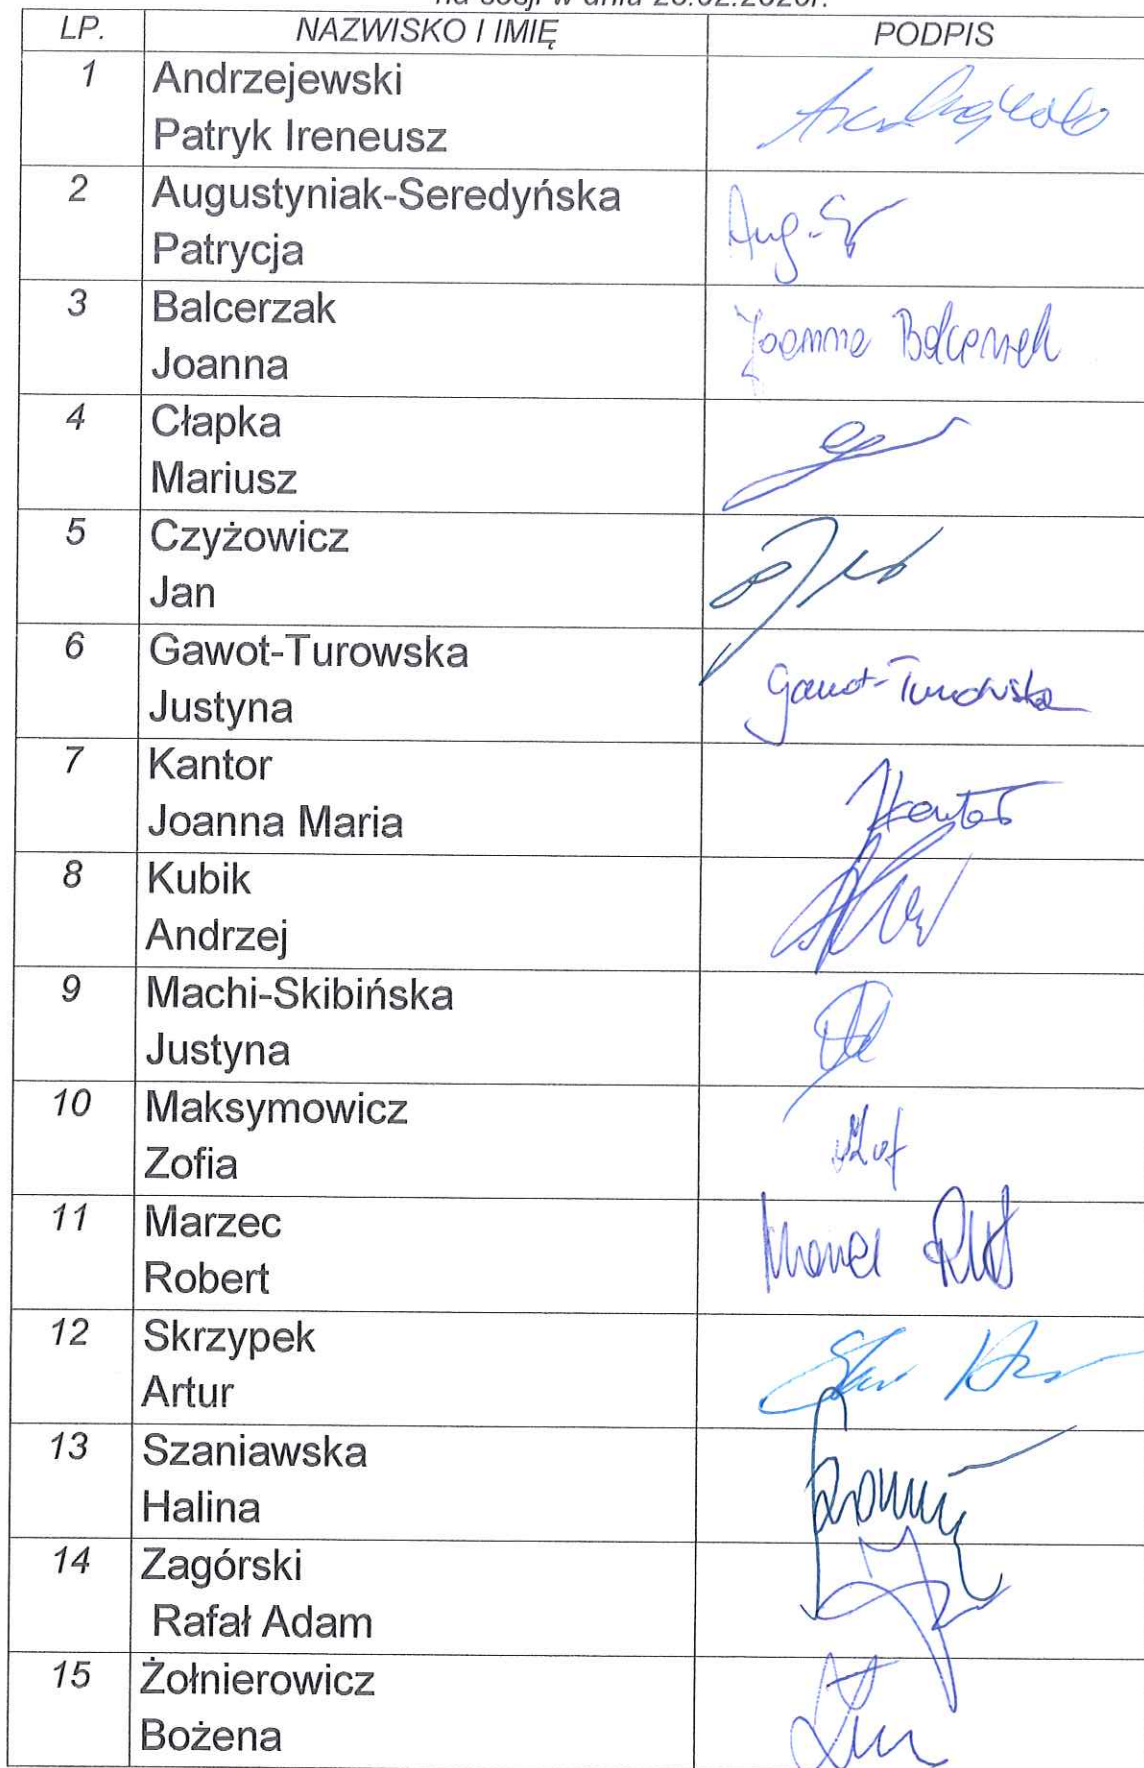 na sesji w dniu 26.02.2020r.
LP. NAZWISKO I IMIĘ PODPIS
1 Andrzejewski
Patryk Ireneusz
2 Augustyniak-Seredyńska
Patrycja
Aug.-S
3 Balcerzak
Joanna
Joanna Balcerzak
4 Cłapka
Mariusz
5 Czyżowicz
Jan
6 Gawot-Turowska
Justyna
Gawot-Turowska
7 Kantor
Joanna Maria
Kantor
8 Kubik
Andrzej
9 Machi-Skibińska
Justyna
10 Maksymowicz
Zofia
11 Marzec
Robert
Marzec
12 Skrzypek
Artur
13 Szaniawska
Halina
14 Zagórski
Rafał Adam
15 Żołnierowicz
Bożena